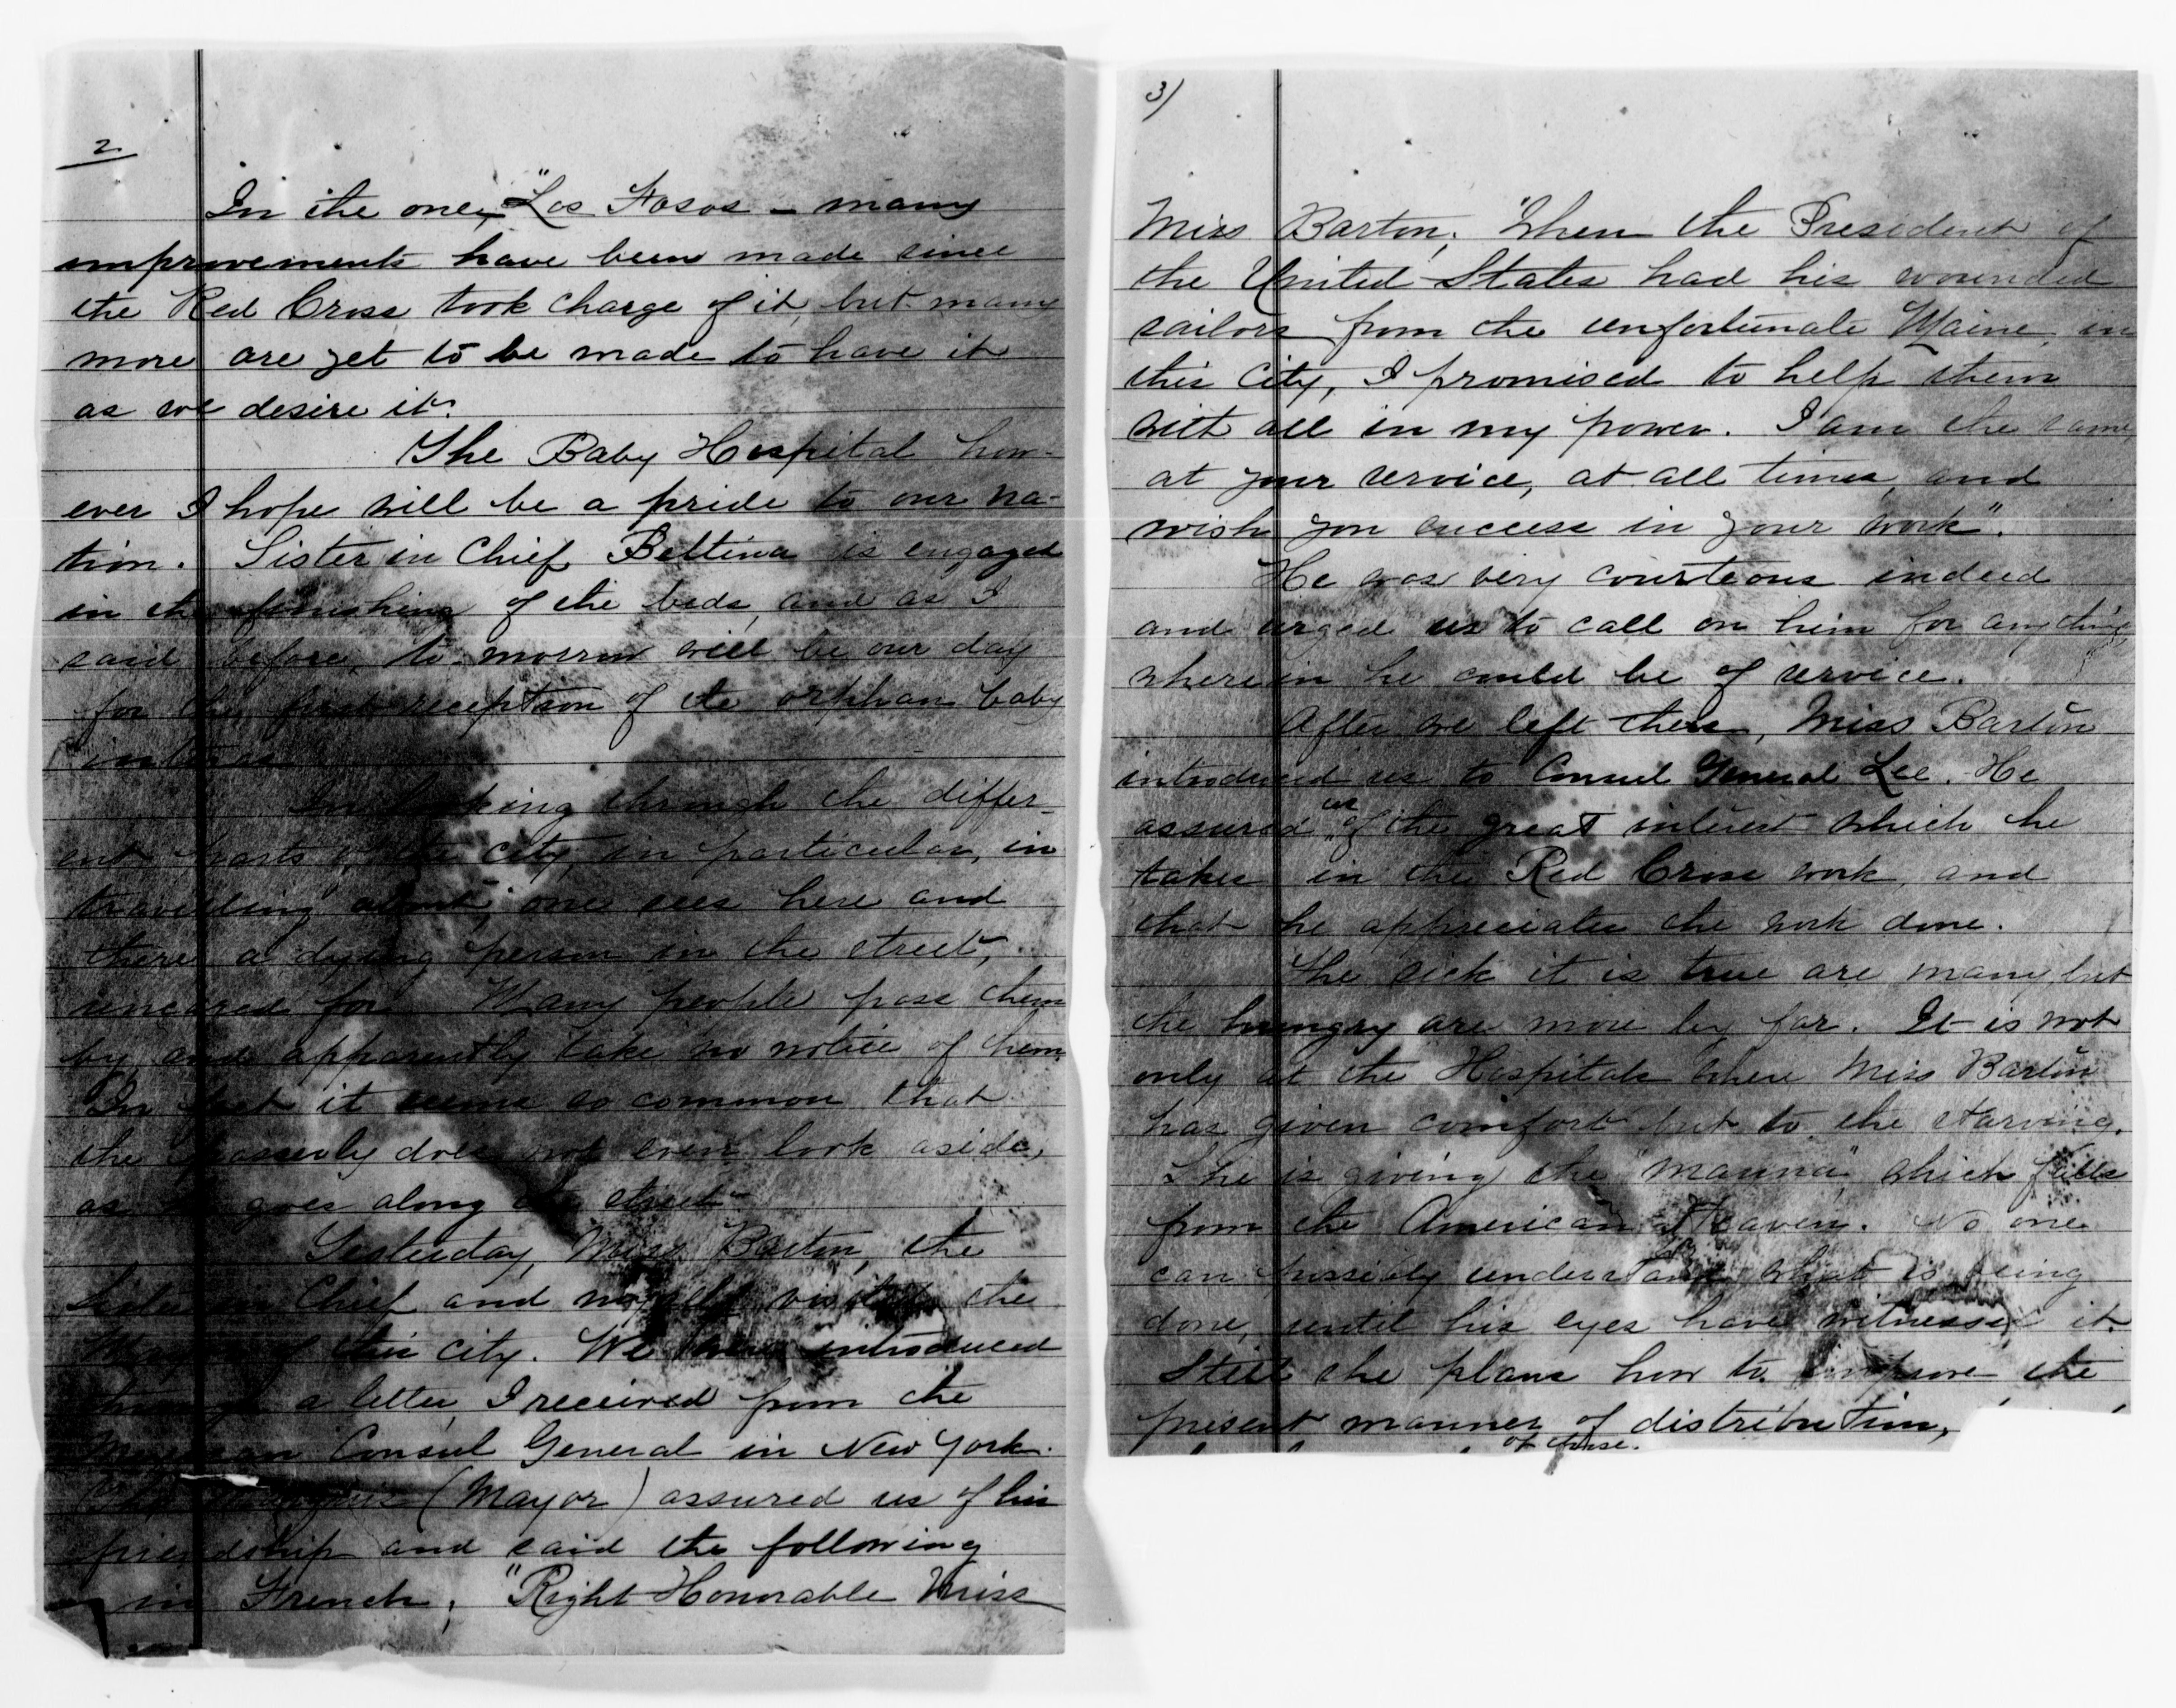 2
In the one, "Los Fosos - many
improvements have been made since
the Red Cross took charge of it, but many
more are yet to be made to have it
as we desire it.
The Baby Hospital how-
ever I hope will be a pride to our na-
tion. Sister in Chief Bettina is engaged
in the finishing of the beds, and as I
said before, to-morrow will be our day
for the first reception of the orphan baby
in looking through the differ-
ent parts of the city, in particular, in
travelling about, one sees here and
there a dying person in the street,
uncared for. Many people pass them
by, and apparently take no notice of them
In fact it seems so common that
the passerby does not even look aside,
as he goes along the street.
Yesterday, Miss Barton, the
Sister in Chief and myself visited the
Mayor of this city. We were introduced
through a letter, I received from the
Consul General in New York.
The (Mayor) assured us of his
friendship and said the following
in French; "Right Honorable Miss
3)
Miss Barton; When the President of
the United States had his wounded
sailors from the unfortunate Maine, in
this City, I promised to help them
with all in my power. I am the same
at your service, at all times, and
wish you success in your work".
He was very courteous indeed
and urged us to call on him for anything
wherein he could be of service.
After we left there, Miss Barton
introduced us to Consul General Lee. He
assured us of the great interest which he
takes in the Red Cross work, and
that he appreciates the work done.
The sick it is true are many, but
the hungry are more by far. It is not
only at the Hospitals where Miss Barton
has given comfort but to the starving.
She is giving the "manna", which falls
from the American Heaven. No one
can possibly understand what is being
done, until his eyes have witnessed it.
Still she plans how to improve the
present manner of distribution,
of these.